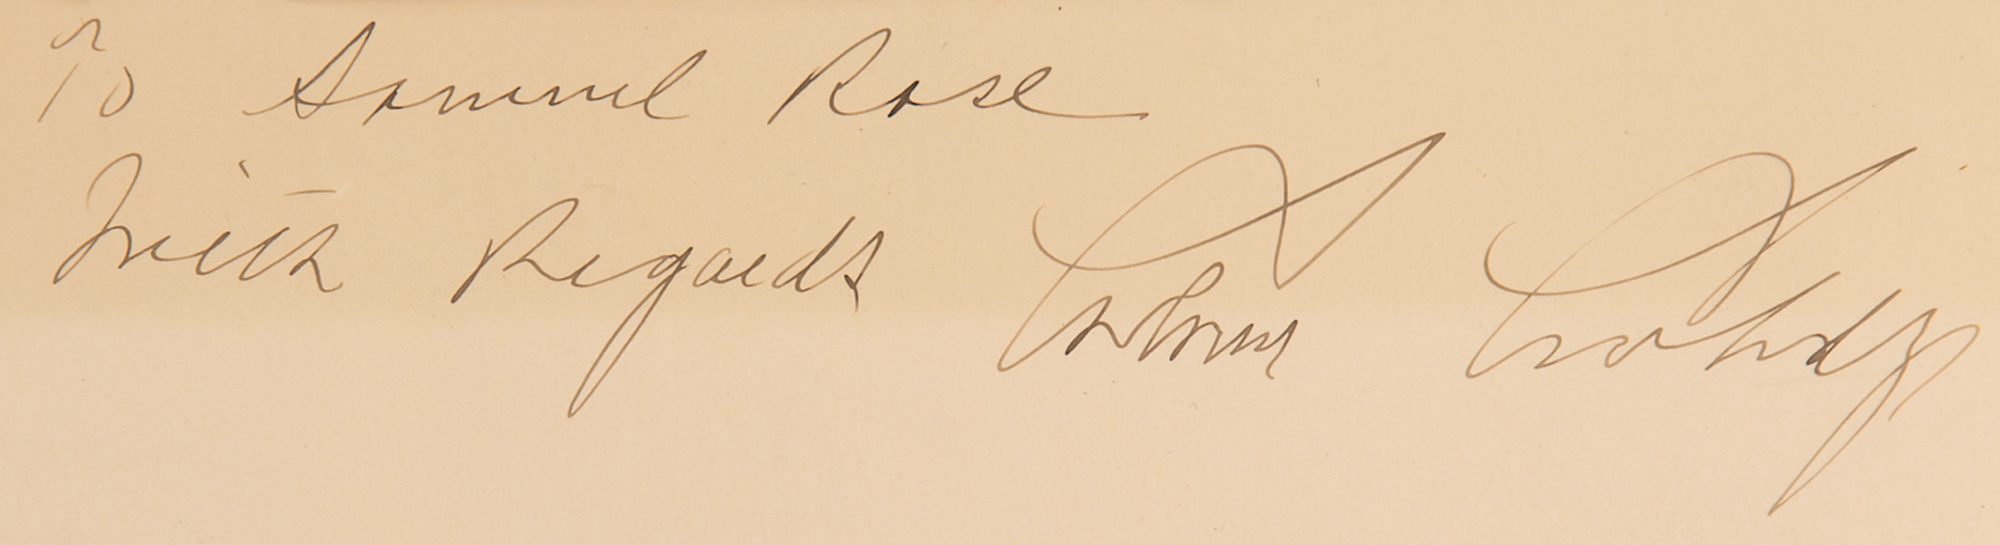 To Samuel Rose
With Regards Calvin Coolidge